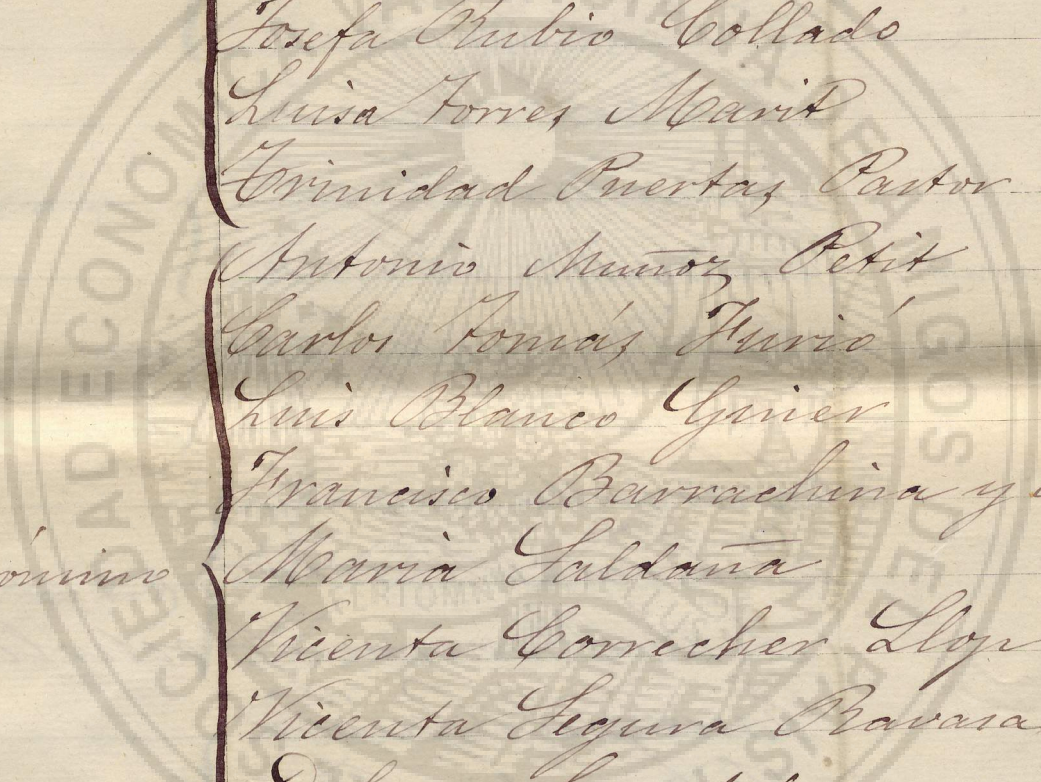 Josefa Rubio Collado
Luisa Torres Marit
Trinidad Puertas Pastor
Antonio Muñoz Petit
Carlos Tomás Furió
Luis Blanco Giner
Francisco Barrachina y
María Saldaña
ónimo
Vicenta Correcher Llop
Vicenta Segura